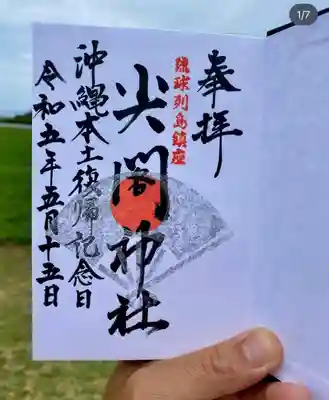 1/7
奉拝
琉球列島鎮座
尖閣神社
沖縄本土復帰記念日
令和五年五月十五日